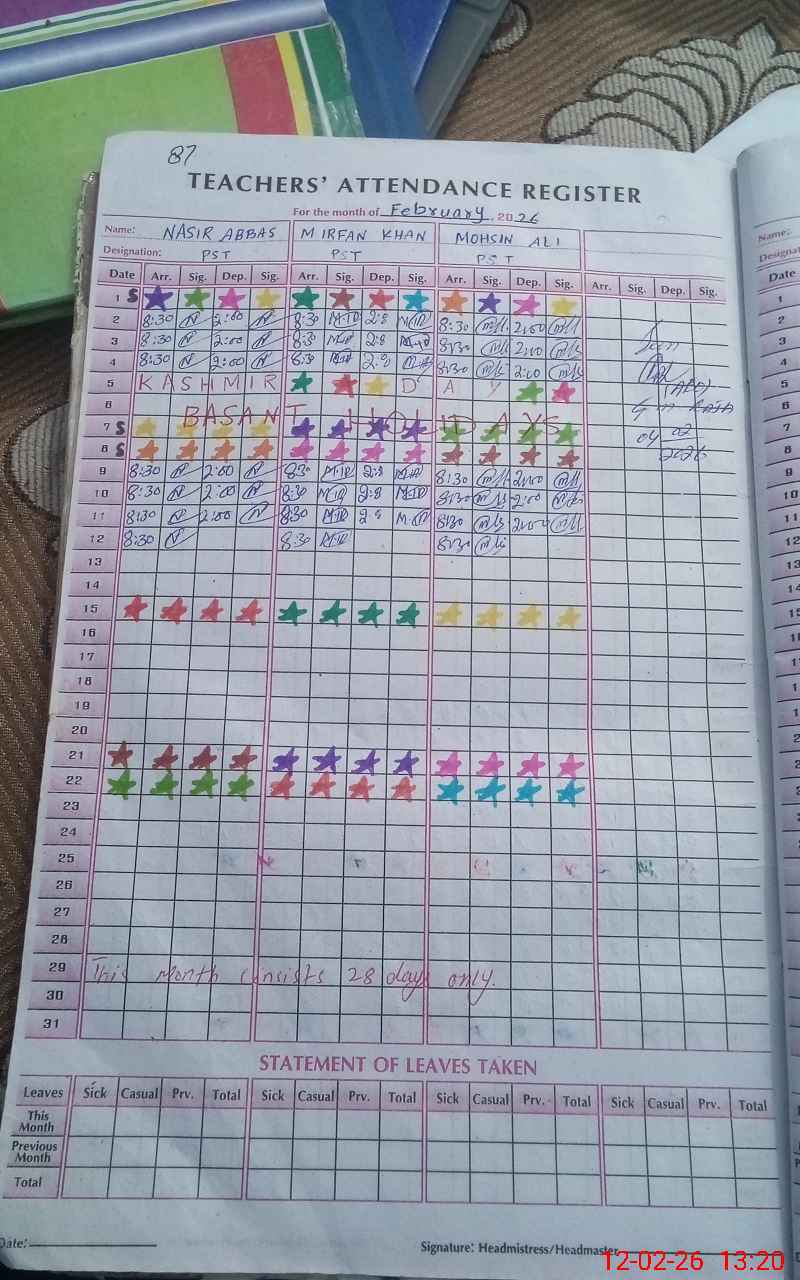 87
TEACHERS' ATTENDANCE REGISTER
For the month of February, 2026
Name: NASIR ABBAS M IRFAN KHAN MOHSIN ALI
Designation: PST PST PST
Date Arr. Sig. Dep. Sig. Arr. Sig. Dep. Sig. Arr. Sig. Dep. Sig. Arr. Sig. Dep. Sig.
1 S
2 8:30 2:00 8:30 2:8 8:30 2:00
3 8:30 2:00 8:30 2:8 8:30 2:00
4 8:30 2:00 8:30 2:8 8:30 2:00
5 KASHMIR D A Y
6 BASANT HOLIDAYS
7 S
8 S
9 8:30 2:00 8:30 2:8 8:30 2:00
10 8:30 2:00 8:30 2:8 8:30 2:00
11 8:30 2:00 8:30 2:8 8:30 2:00
12 8:30 8:30 8:30
13
14
15
16
17
18
19
20
21
22
23
24
25
26
27
28
29 This Month consists 28 days only.
30
31
04 02 2026
STATEMENT OF LEAVES TAKEN
Leaves Sick Casual Prv. Total Sick Casual Prv. Total Sick Casual Prv. Total Sick Casual Prv. Total
This Month
Previous Month
Total
Date:
Signature: Headmistress/Headmaster
12-02-26 13:20
Name:
Date